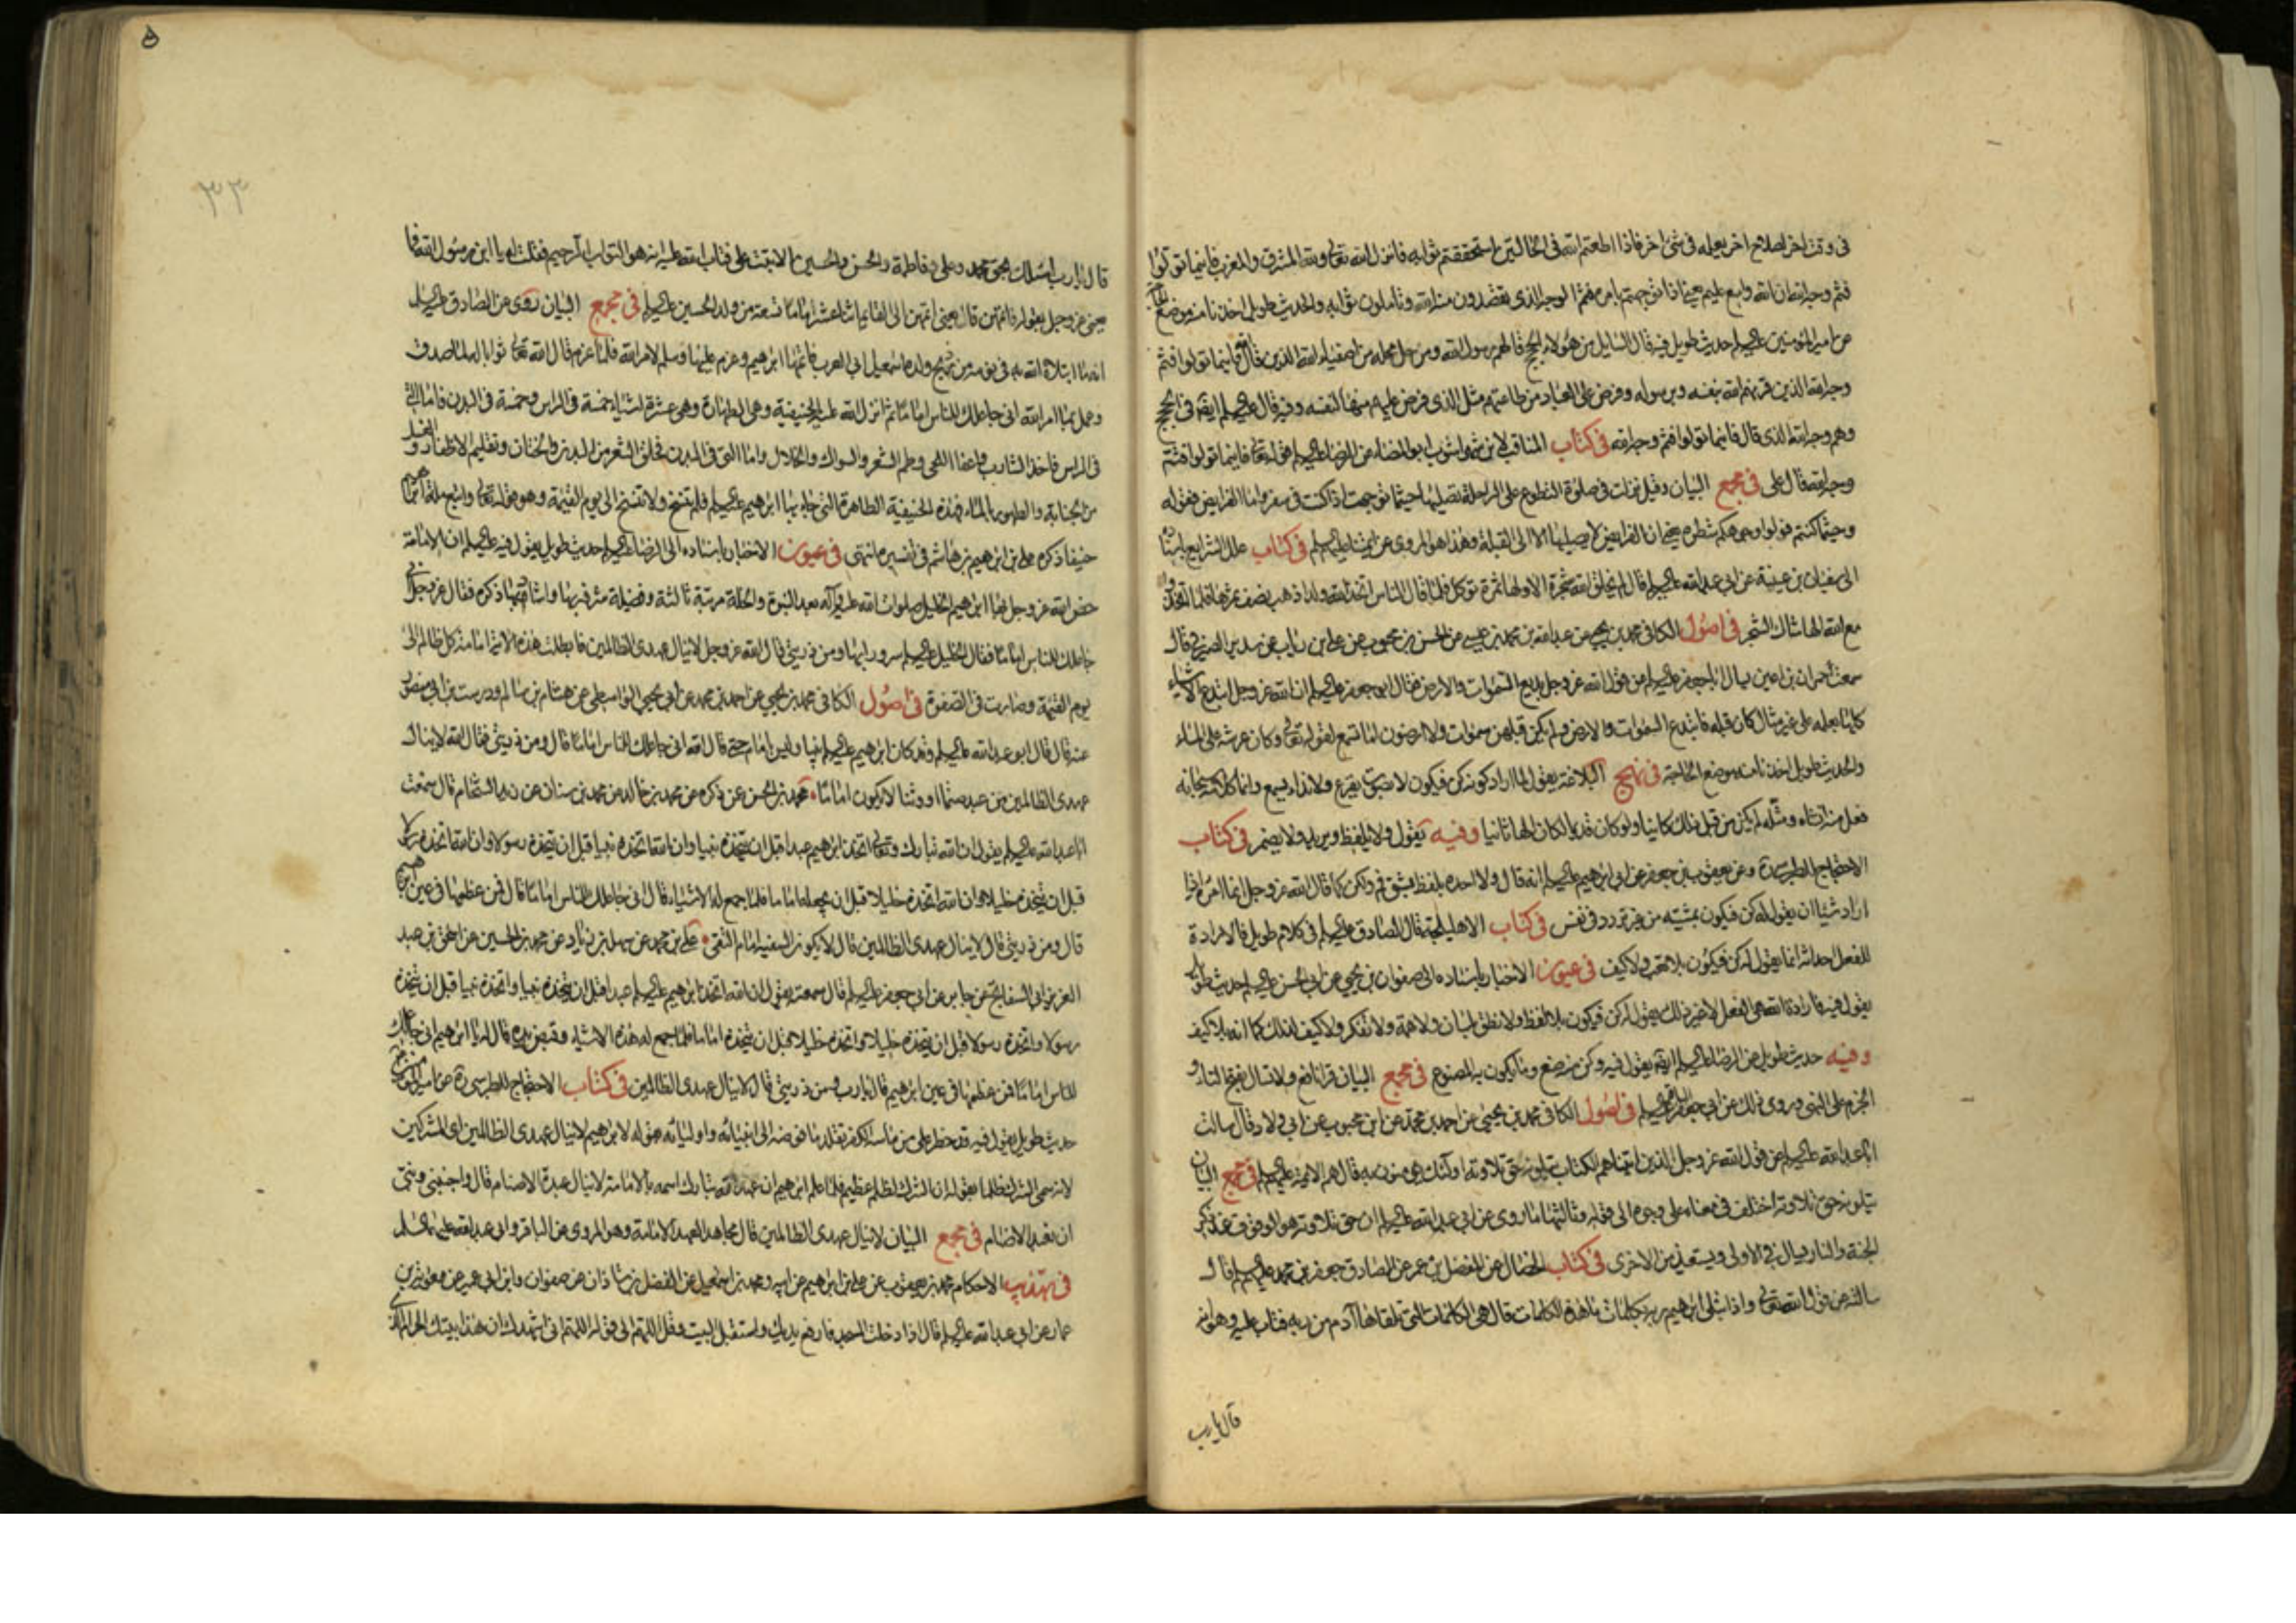 فى وقت اخر لصلاح اخر يعلمه فى شئ اخر فاذا اطعتم الله فى الحالتين استحققتم ثوابه فانزل الله تعالى ولله المشرق والمغرب فاينما تولوا
فثم وجه الله ان الله واسع عليم يعنى اذا توجهتم بامره فثم الوجه الذى تقصدون منه الله وتاملون ثوابه والحديث طويل اخذنا منه موضع الحاجة
عن امير المؤمنين عليه السلم حديث طويل وفيه قال السايل من هؤلاء الحجج قال هم رسول الله ومن حل محله من اصفياء الله الذين قال فاينما تولوا فثم
وجه الله الذين قرنهم الله بنفسه وبرسوله وفرض على العباد من طاعتهم مثل الذى فرض عليهم منها لنفسه وفيه قال عليه السلم ايضا فى الحجج
وهم وجه الله الذى قال فاينما تولوا فثم وجه الله فى كتاب المناقب لابن شهراشوب ابو المضاء عن الرضا عليه السلم قوله تعالى فاينما تولوا فثم
وجه الله قال على فى مجمع البيان وقيل نزلت فى صلوة التطوع على الراحلة تصليها حيثما توجهت اذا كنت فى سفر واما الفرايض فقوله
وحيثما كنتم فولوا وجوهكم شطره يعنى ان الفرايض لا يصليها الا الى القبلة وهذا هو المروى عن ائمتنا عليهم السلم فى كتاب علل الشرايع باسناده
الى سفيان بن عيينة عن ابى عبدالله عليه السلم قال لم يخلق الله شجرة الا ولها ثمرة توكل فلما قال الناس اتخذ الله ولدا ذهب نصف ثمرها فلما اتخذوا
مع الله الها شاك الشجر فى اصول الكافى محمد بن يحيى عن عبدالله بن محمد بن عيسى عن الحسن بن محبوب عن على بن رئاب عن سدير الصيرفى قال
سمعت حمران بن اعين يسال ابا جعفر عليه السلم عن قول الله عز وجل بديع السموات والارض فقال ابو جعفر عليه السلم ان الله عز وجل ابتدع الاشياء
كلها بعلمه على غير مثال كان قبله فابتدع السموات والارض ولم يكن قبلهن سموات ولا ارضون اما تسمع لقوله تعالى وكان عرشه على الماء
والحديث طويل اخذنا منه موضع الحاجة فى نهج البلاغة يقول لما اراد كونه كن فيكون لا بصوت يقرع ولا نداء يسمع وانما كلامه سبحانه
فعل منه انشاه ومثله لم يكن من قبل ذلك كاينا ولو كان قديما لكان الها ثانيا وفيه يقول ولا يلفظ ويريد ولا يضمر فى كتاب
الاحتجاج للطبرسى ره وعن يعقوب بن جعفر عن ابى ابراهيم عليه السلم انه قال ولا احده بلفظ بشق فم ولكن كما قال الله عز وجل انما امره اذا
اراد شيئا ان يقول له كن فيكون بمشيته من غير تردد فى نفس فى كتاب الاهليلجة قال الصادق عليه السلم فى كلام طويل فالارادة
للفعل احداثه انما يقول له كن فيكون بلا تعب ولا كيف فى عيون الاخبار باسناده الى صفوان بن يحيى عن ابى الحسن عليه السلم حديث طويل
يقول فيه فارادة الله هى الفعل لا غير ذلك يقول له كن فيكون بلا لفظ ولا نطق بلسان ولا همة ولا تفكر ولا كيف لذلك كما انه بلا كيف
وفيه حديث طويل عن الرضا عليه السلم ايضا يقول فيه وكن منه صنع وما يكون به المصنوع فى مجمع البيان قرا نافع ولا تسال بفتح التاء و
الجزم على النهى وروى ذلك عن ابى جعفر الباقر عليه السلم فى اصول الكافى محمد بن يحيى عن احمد بن محمد عن ابن محبوب عن ابى ولاد قال سالت
ابا عبدالله عليه السلم عن قول الله عز وجل الذين اتيناهم الكتاب يتلونه حق تلاوته اولئك يؤمنون به قال هم الائمة عليهم السلم فى مجمع البيان
يتلونه حق تلاوته اختلف فى معناه على وجوه الى قوله وثالثها ما روى عن ابى عبدالله عليه السلم ان حق تلاوته هو الوقوف عند ذكر
الجنة والنار يسال فى الاولى ويستعيذ من الاخرى فى كتاب الخصال عن المفضل بن عمر عن الصادق جعفر بن محمد عليهما السلم قال
سالته عن قول الله تعالى واذ ابتلى ابراهيم ربه بكلمات ما هذه الكلمات قال هى الكلمات التى تلقاها آدم من ربه فتاب عليه وهو انه
قال يا رب
٣٣
قال يا رب اسئلك بحق محمد وعلى وفاطمة والحسن والحسين الا تبت على فتاب الله عليه انه هو التواب الرحيم فقلت له يا ابن رسول الله فما
يعنى عز وجل بقوله فاتمهن قال يعنى اتمهن الى القايم اثنا عشر اماما تسعة من ولد الحسين عليه السلم فى مجمع البيان روى عن الصادق عليه السلم
انه ما ابتلاه الله به فى نومه من ذبح ولده اسمعيل ابى العرب فاتمها ابراهيم وعزم عليها وسلم لامر الله فلما عزم قال الله تعالى ثوابا له لما صدق
وعمل بما امر الله انى جاعلك للناس اماما ثم انزل الله عليه الحنيفية وهى الطهارة وهى عشرة اشياء خمسة فى الراس وخمسة فى البدن فاما التى
فى الراس فاخذ الشارب واعفا اللحى وطم الشعر والسواك والخلال واما التى فى البدن فحلق الشعر من البدن والختان وتقليم الاظفار والغسل
من الجنابة والطهور بالماء فهذه الحنيفية الطاهرة التى جاء بها ابراهيم عليه السلم فلم تنسخ ولا تنسخ الى يوم القيمة وهو قوله تعالى واتبع ملة ابراهيم
حنيفا ذكره على بن ابراهيم بن هاشم فى تفسيره انتهى فى عيون الاخبار باسناده الى الرضا عليه السلم حديث طويل يقول فيه عليه السلم ان الامامة
خص الله عز وجل بها ابراهيم الخليل صلوات الله عليه وآله بعد النبوة والخلة مرتبة ثالثة وفضيلة شرفه بها واشاد بها ذكره فقال عز وجل انى
جاعلك للناس اماما فقال الخليل عليه السلم سرورا بها ومن ذريتى قال الله عز وجل لا ينال عهدى الظالمين فابطلت هذه الاية امامة كل ظالم الى
يوم القيمة وصارت فى الصفوة فى اصول الكافى محمد بن يحيى عن احمد بن محمد عن ابى يحيى الواسطى عن هشام بن سالم ودرست بن ابى منصور
عنه قال قال ابو عبدالله عليه السلم وقد كان ابراهيم عليه السلم نبيا وليس بامام حتى قال الله انى جاعلك للناس اماما قال ومن ذريتى فقال الله لا ينال
عهدى الظالمين من عبد صنما او وثنا لا يكون اماما محمد بن الحسن عمن ذكره عن محمد بن خالد عن محمد بن سنان عن زيد الشحام قال سمعت
ابا عبدالله عليه السلم يقول ان الله تبارك وتعالى اتخذ ابراهيم عبدا قبل ان يتخذه نبيا وان الله اتخذه نبيا قبل ان يتخذه رسولا وان الله اتخذه رسولا
قبل ان يتخذه خليلا وان الله اتخذه خليلا قبل ان يجعله اماما فلما جمع له الاشياء قال انى جاعلك للناس اماما قال فمن عظمها فى عين ابراهيم
قال ومن ذريتى قال لا ينال عهدى الظالمين قال لا يكون السفيه امام التقى على بن محمد عن سهل بن زياد عن محمد بن الحسين عن اسحق بن عبد
العزيز ابى السفاتج عن جابر عن ابى جعفر عليه السلم قال سمعته يقول ان الله اتخذ ابراهيم عليه السلم عبدا قبل ان يتخذه نبيا واتخذه نبيا قبل ان يتخذه
رسولا واتخذه رسولا قبل ان يتخذه خليلا واتخذه خليلا قبل ان يتخذه اماما فلما جمع له هذه الاشياء وقبض يده قال له يا ابراهيم انى جاعلك
للناس اماما فمن عظمها فى عين ابراهيم قال يا رب ومن ذريتى قال لا ينال عهدى الظالمين فى كتاب الاحتجاج للطبرسى ره عن امير المؤمنين
حديث طويل يقول فيه قد حظر على من ماسه الكفر تقلد ما فوضه الى انبيائه واوليائه بقوله لابراهيم لا ينال عهدى الظالمين اى المشركين
لانه سمى الشرك ظلما بقوله ان الشرك لظلم عظيم فلما علم ابراهيم ان عهد الله تبارك اسمه بالامامة لا ينال عبدة الاصنام قال واجنبنى وبنى
ان نعبد الاصنام فى مجمع البيان لا ينال عهدى الظالمين قال مجاهد العهد الامامة وهو المروى عن الباقر وابى عبدالله عليهما السلم
فى تهذيب الاحكام محمد بن يعقوب عن على بن ابراهيم عن ابيه ومحمد بن اسمعيل عن الفضل بن شاذان عن صفوان وابن ابى عمير عن معوية بن
عمار عن ابى عبدالله عليه السلم قال اذا دخلت المسجد فارفع يديك واستقبل البيت وقل اللهم الى قوله اللهم انى اشهدك ان هذا بيتك الحرام الذى